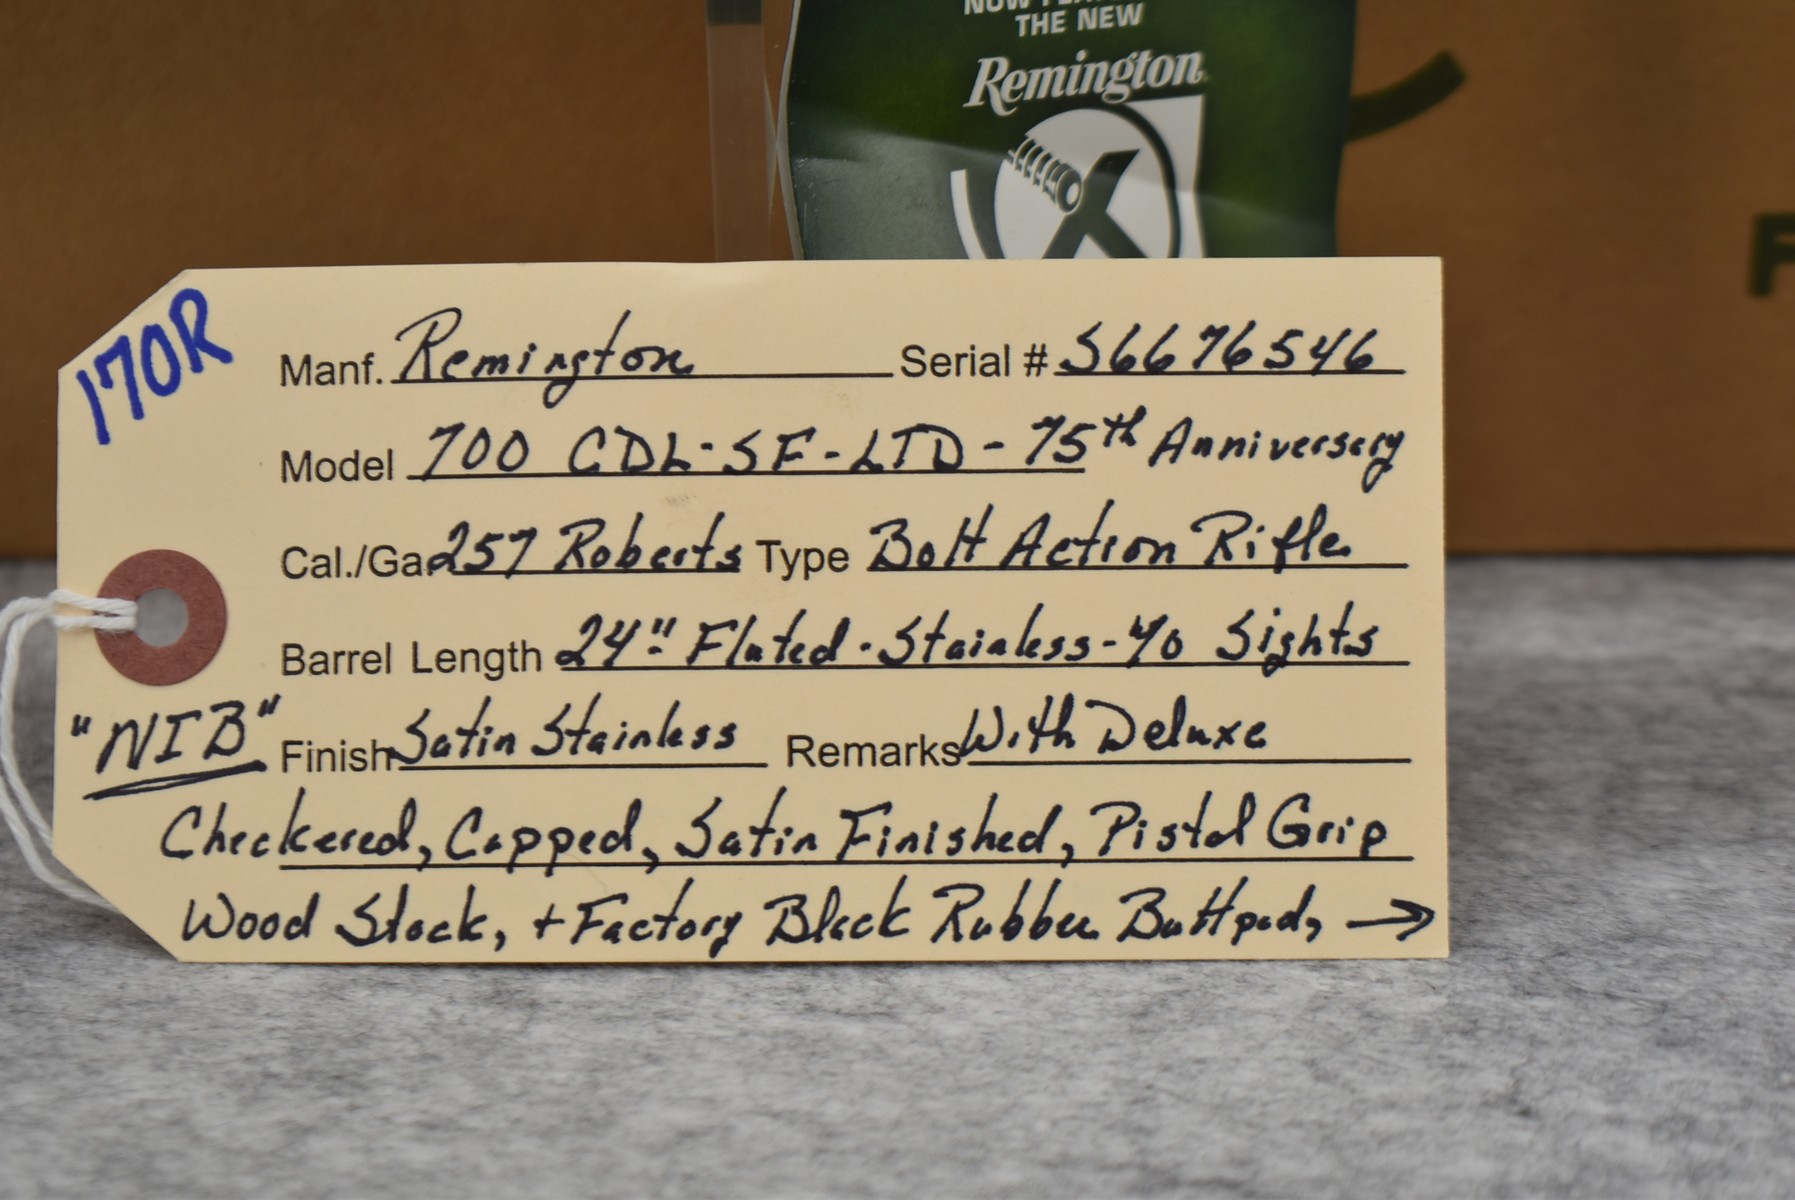 THE NEW
Remington
170R
Manf. Remington Serial # S6676546
Model 700 CDL-SF-LTD-75th Anniversary
Cal./Ga. 257 Roberts Type Bolt Action Rifle
Barrel Length 24" Fluted-Stainless-w/o Sights
"NIB" Finish Satin Stainless Remarks With Deluxe
Checkered, Capped, Satin Finished, Pistol Grip
Wood Stock, + Factory Black Rubber Buttpad, →